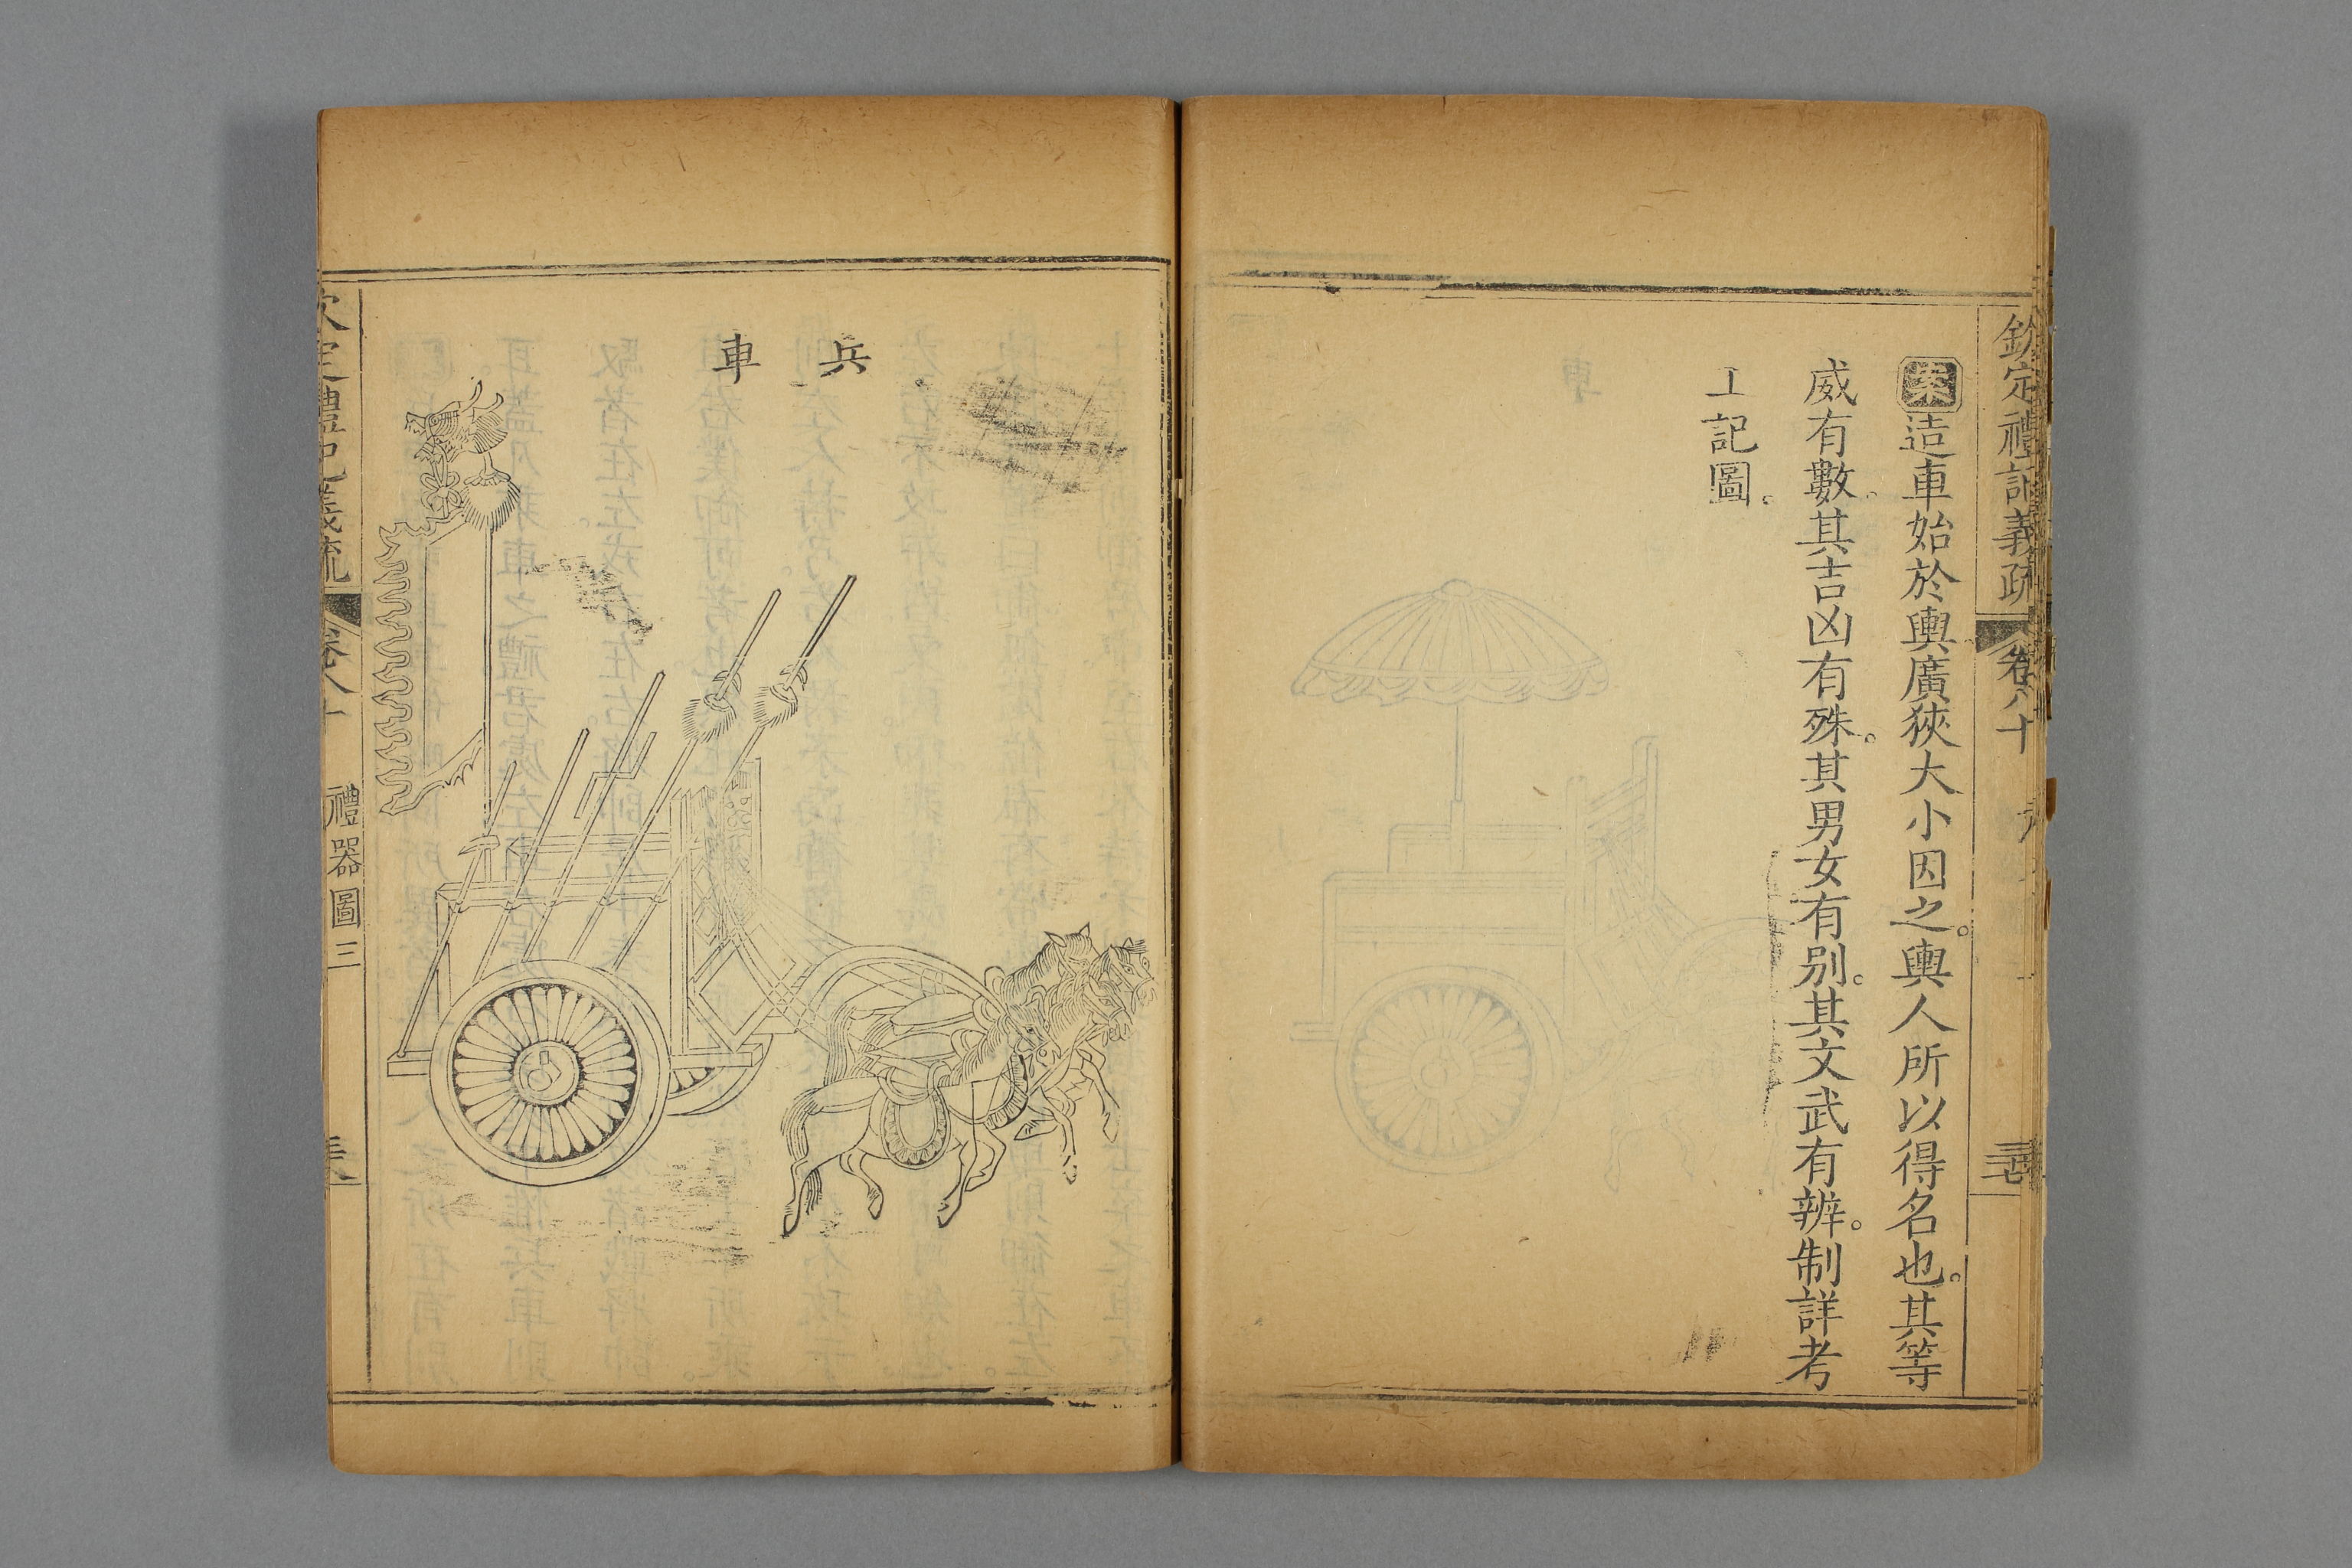 欽定禮記義疏 卷八十
案造車始於輿廣狹大小因之。輿人所以得名也。其等
威有數。其吉凶有殊。其男女有别。其文武有辨。制詳考
工記圖。
兵車
欽定禮記義疏 卷八十 禮器圖三